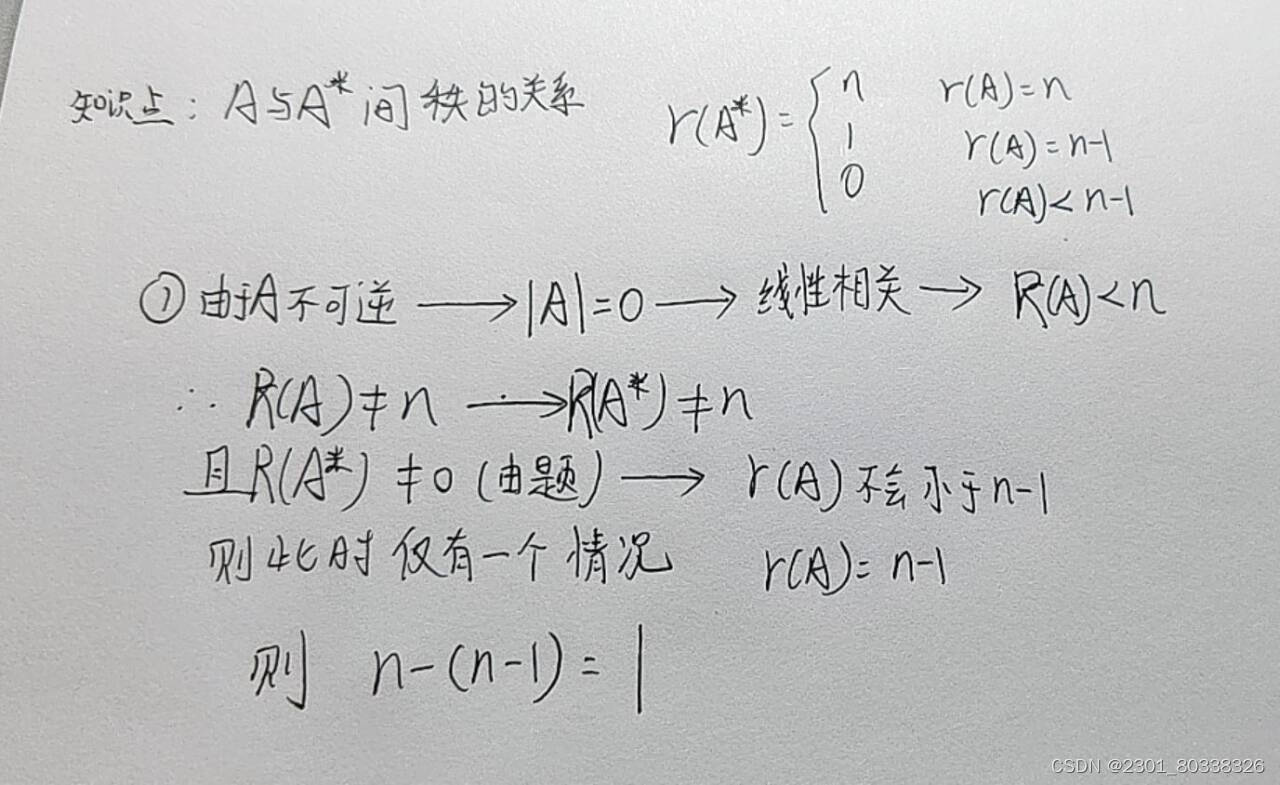 知识点：A与A*间秩的关系
r(A*)={ n r(A)=n
1 r(A)=n-1
0 r(A)<n-1
①由于A不可逆→|A|=0→线性相关→R(A)<n
∴R(A)≠n→R(A*)≠n
且R(A*)≠0(由题)→r(A)不会小于n-1
则此时仅有一个情况 r(A)=n-1
则 n-(n-1)=1
CSDN @2301_80338326